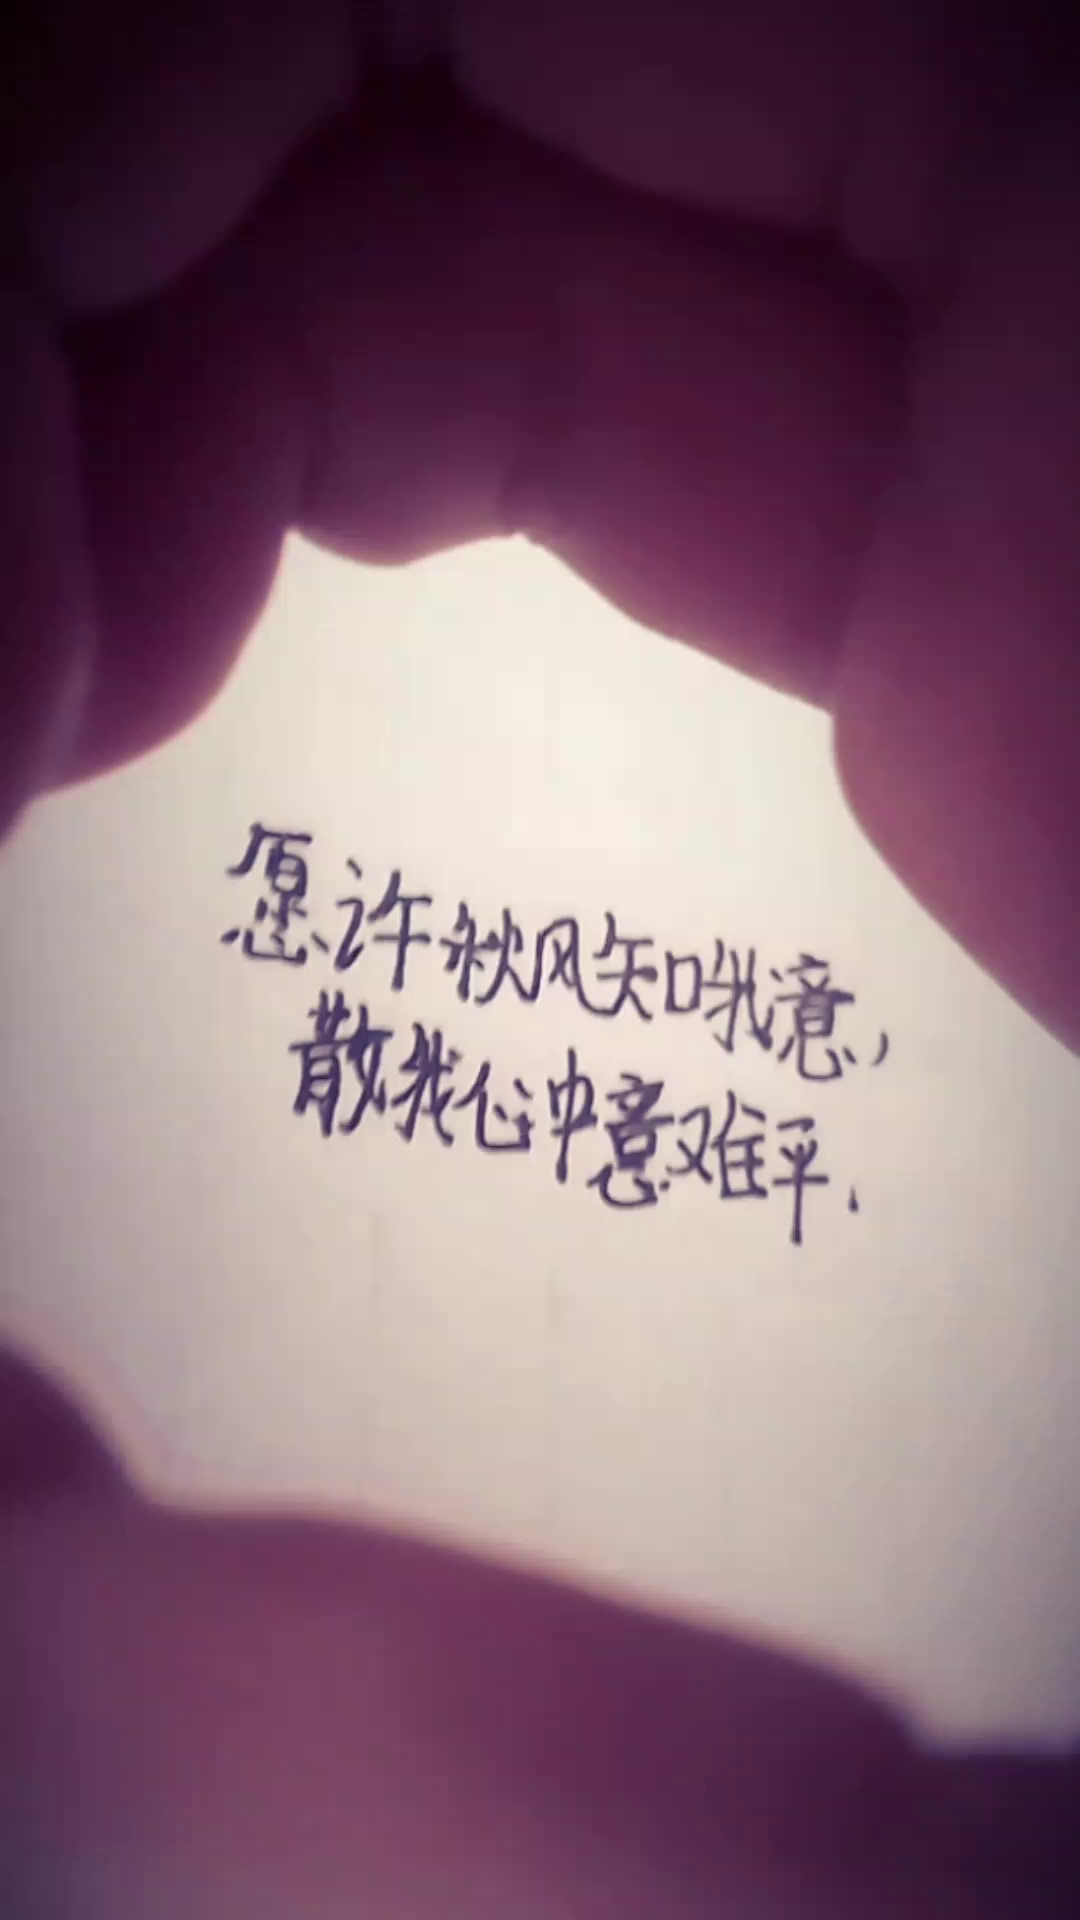 愿许秋风知哦意,
散我心中意难平.